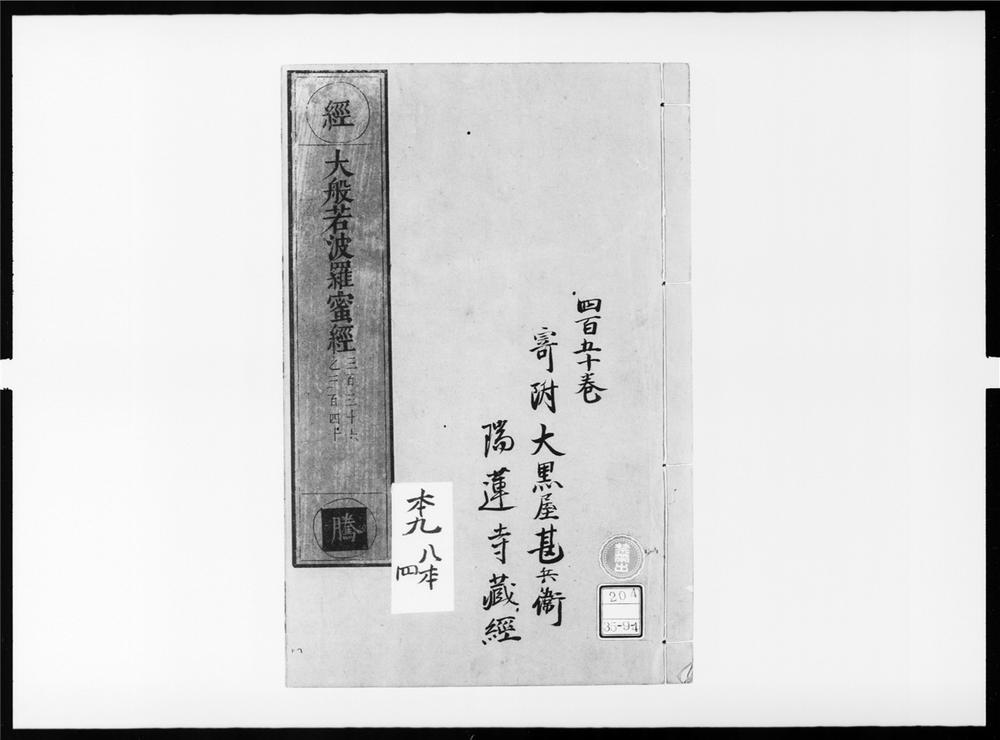 經
大般若波羅蜜經
三百三十六
之三百四十
騰
四百五十巻
寄附大黒屋甚兵衞
瑞蓮寺藏經
本九
八本
四
禁
帶
出
20A
35-94